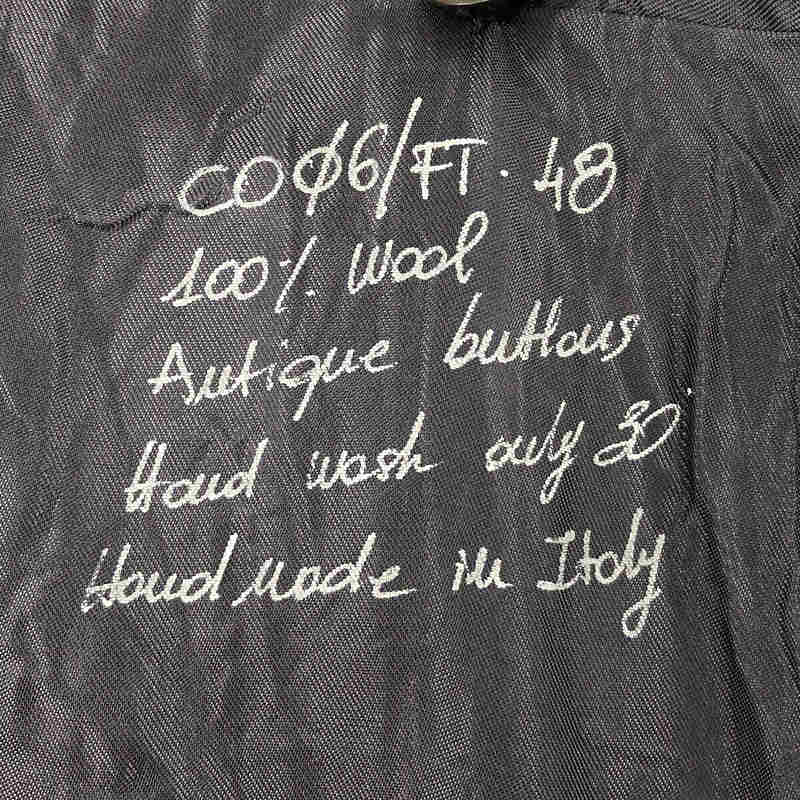 COØ6/FT. 48
100% Wool
Antique buttons
Hand wash only 30°
Handmade in Italy